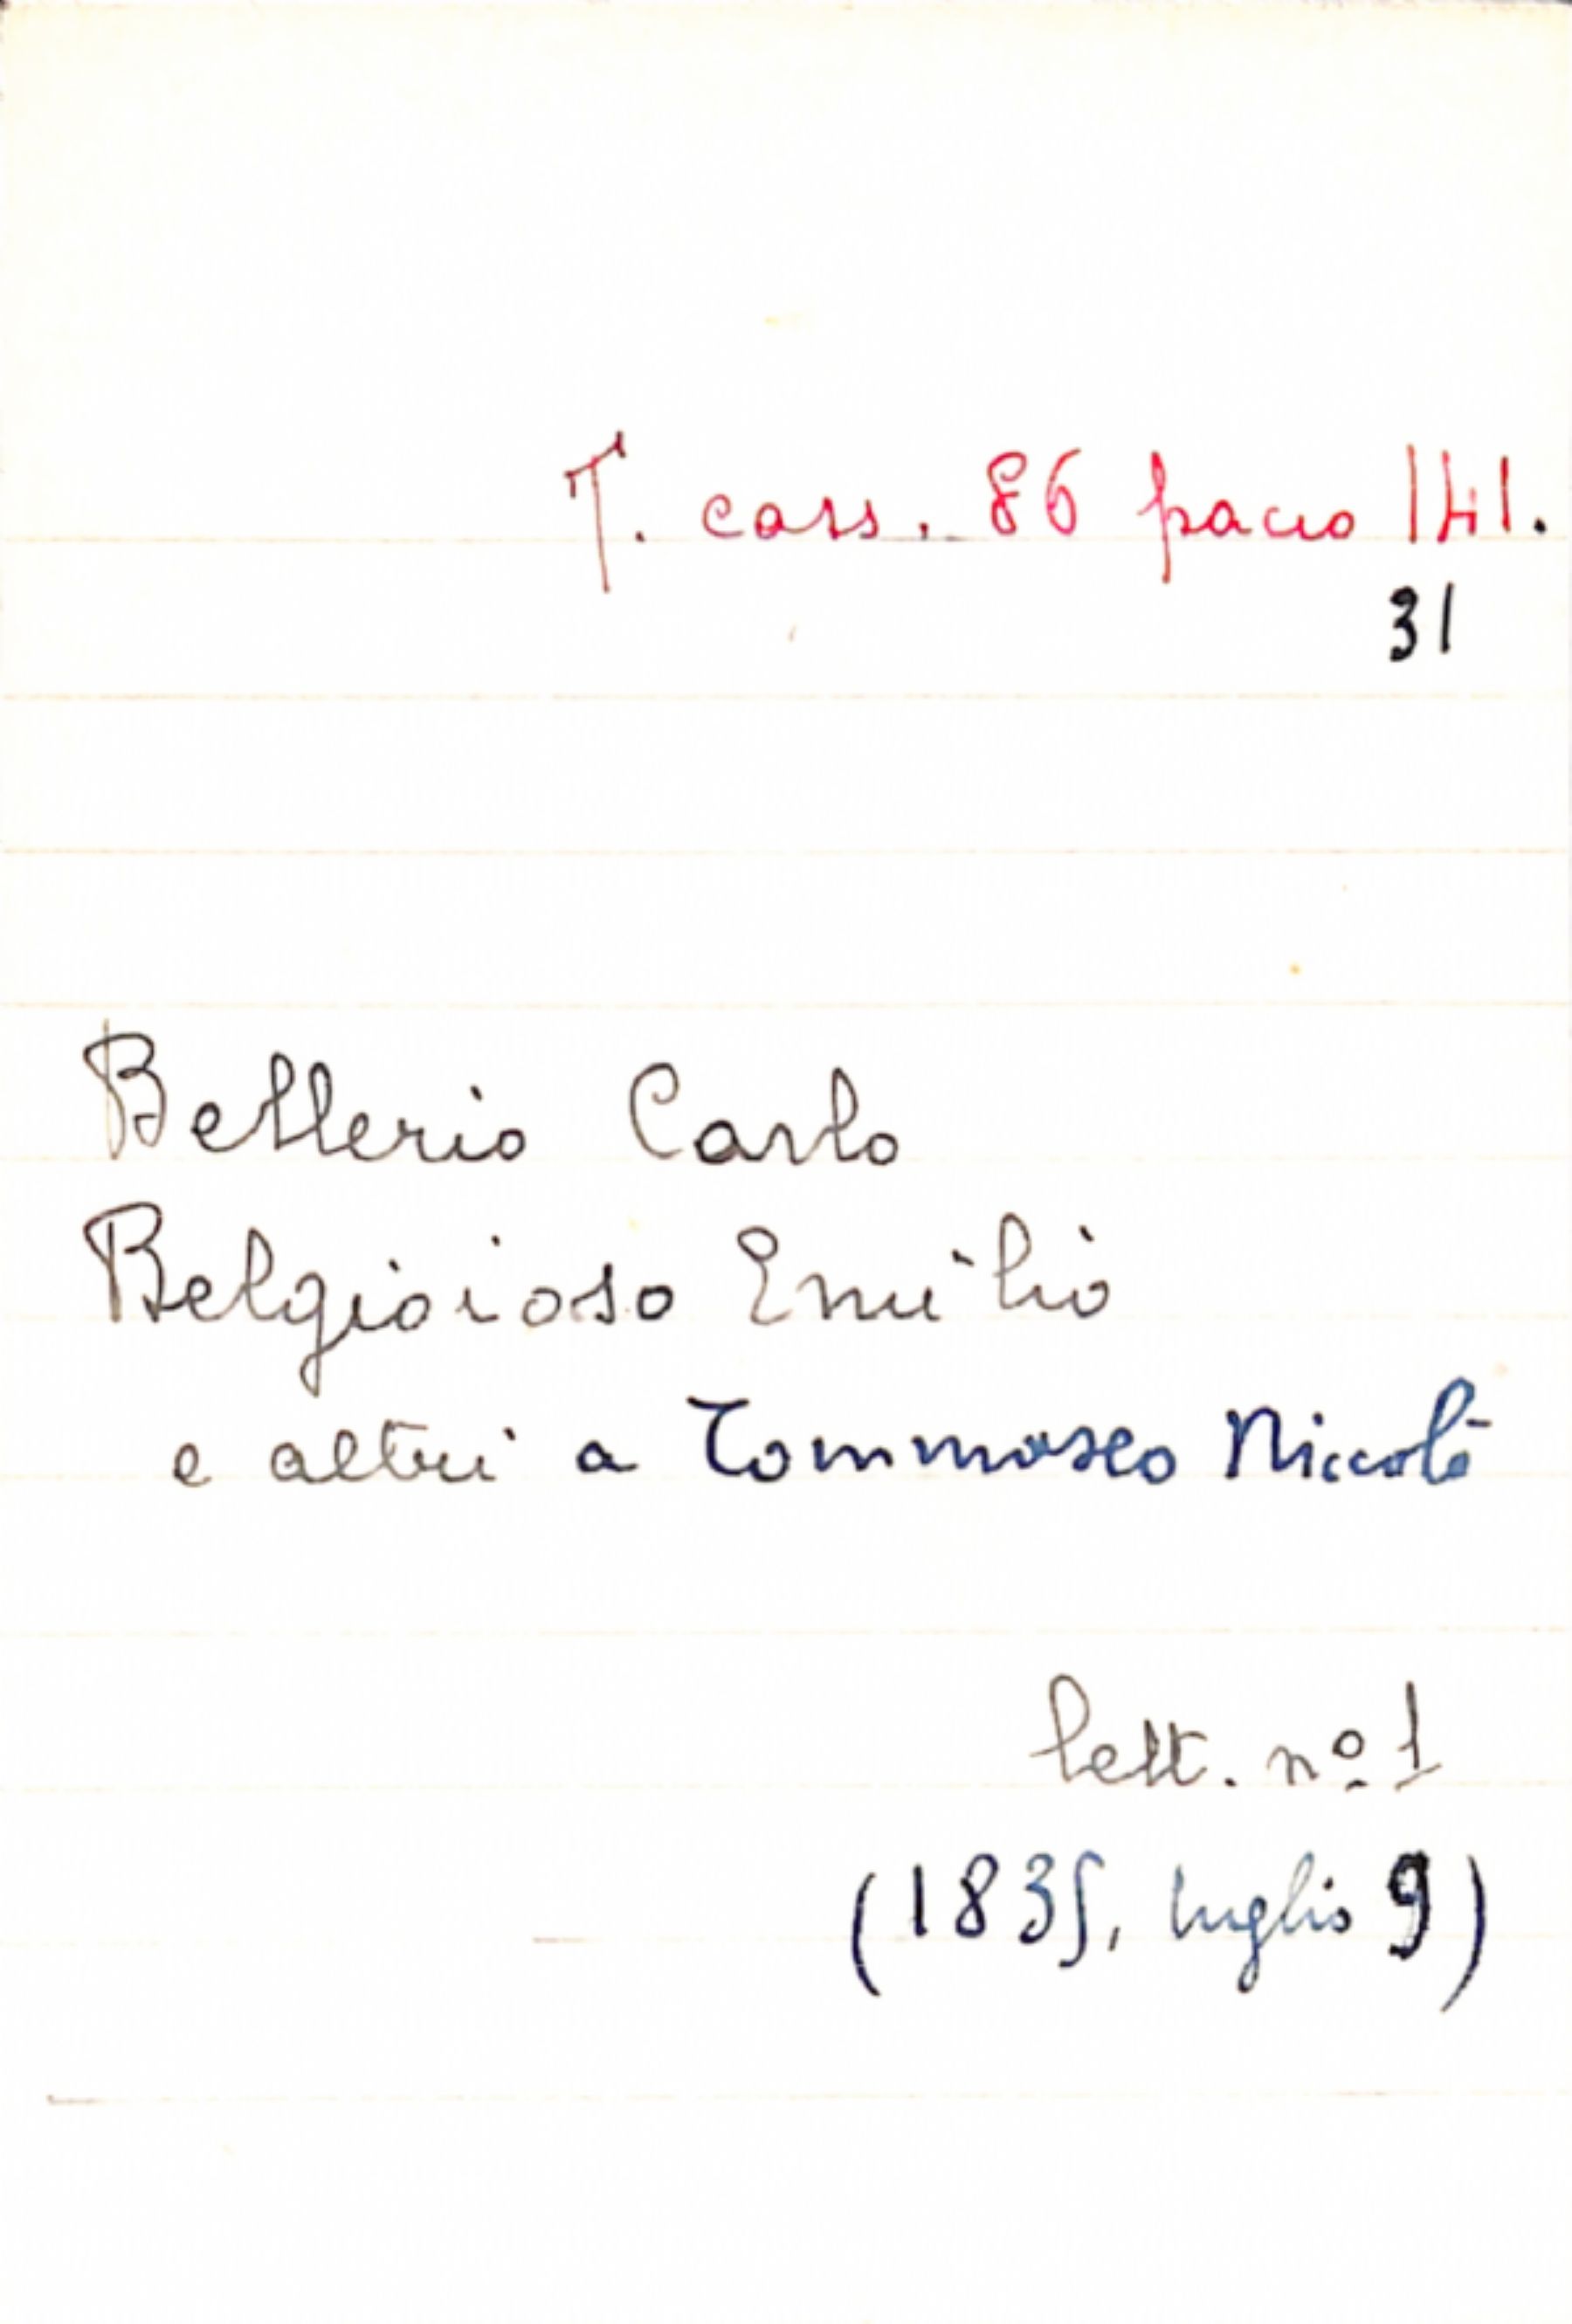 T. cass. 86 pacco 141.
31
Bellerio Carlo
Belgioioso Emilio
e altri a Tommaseo Niccolò
lett. nº 1
(1835, luglio 9)